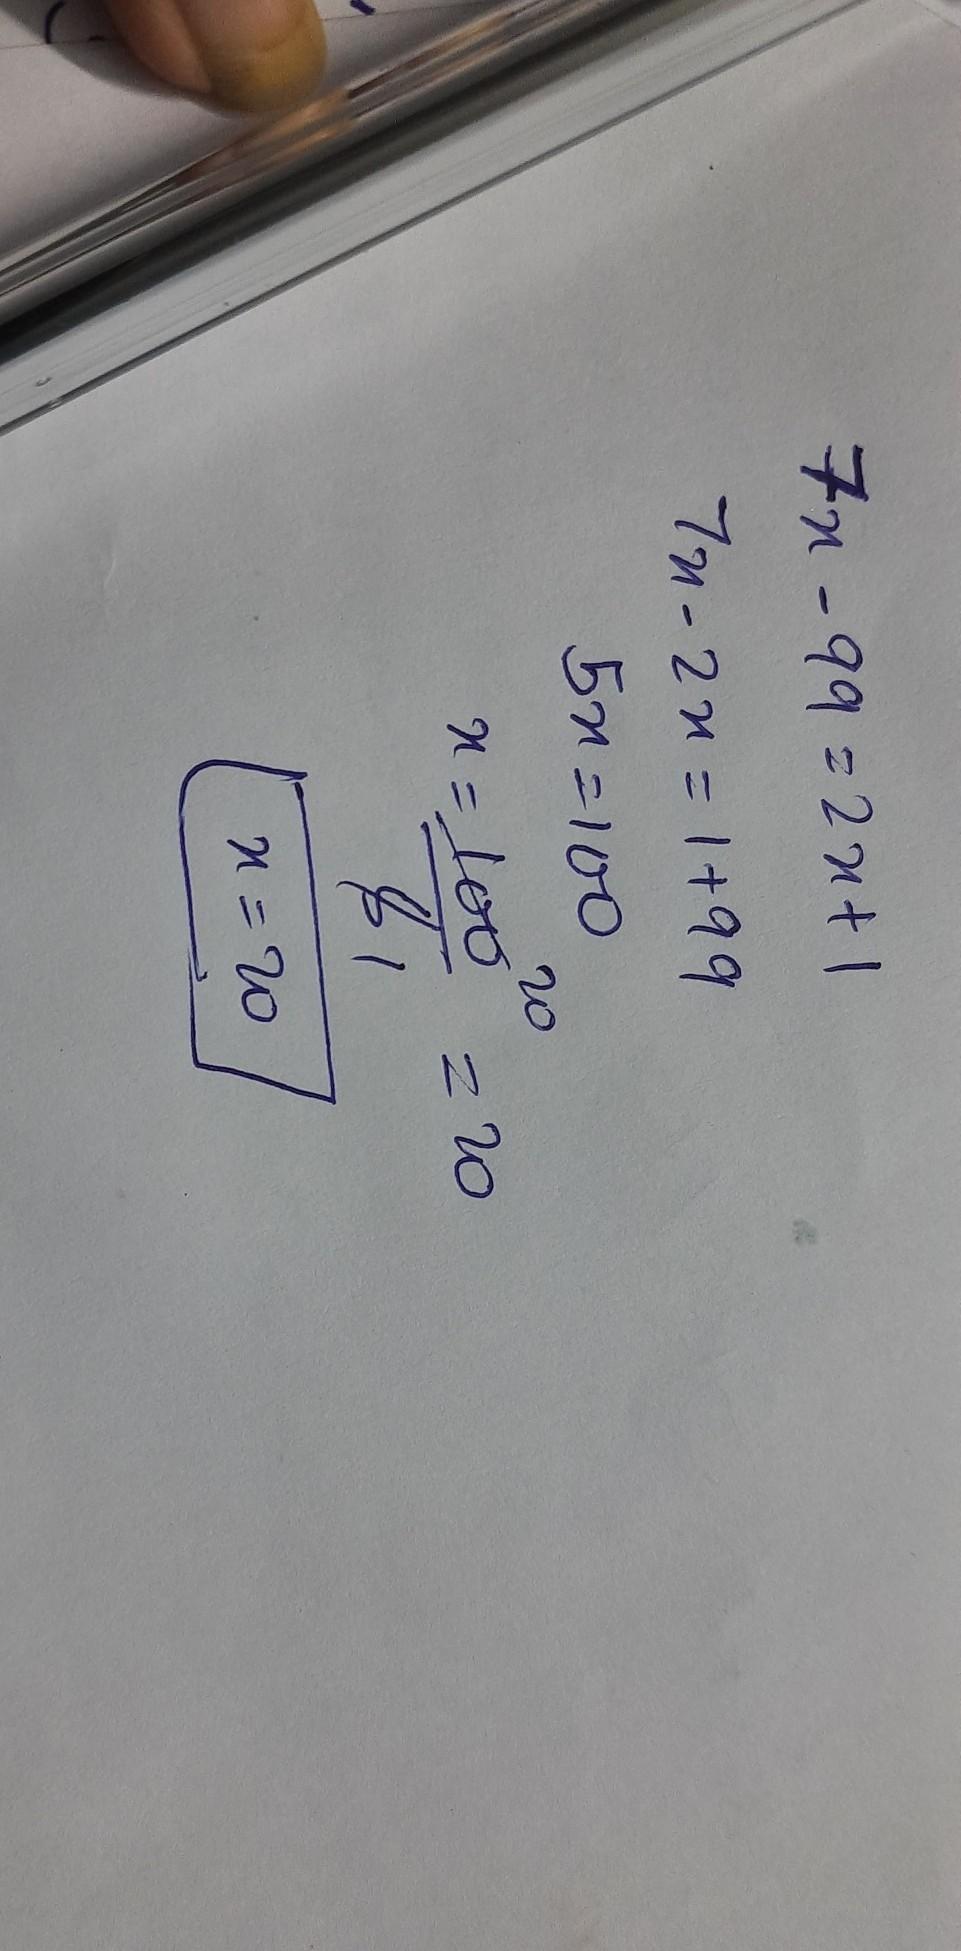 7x - 99 = 2x + 1
7x - 2x = 1 + 99
5x = 100
x = 100/5 20 1 = 20
x = 20